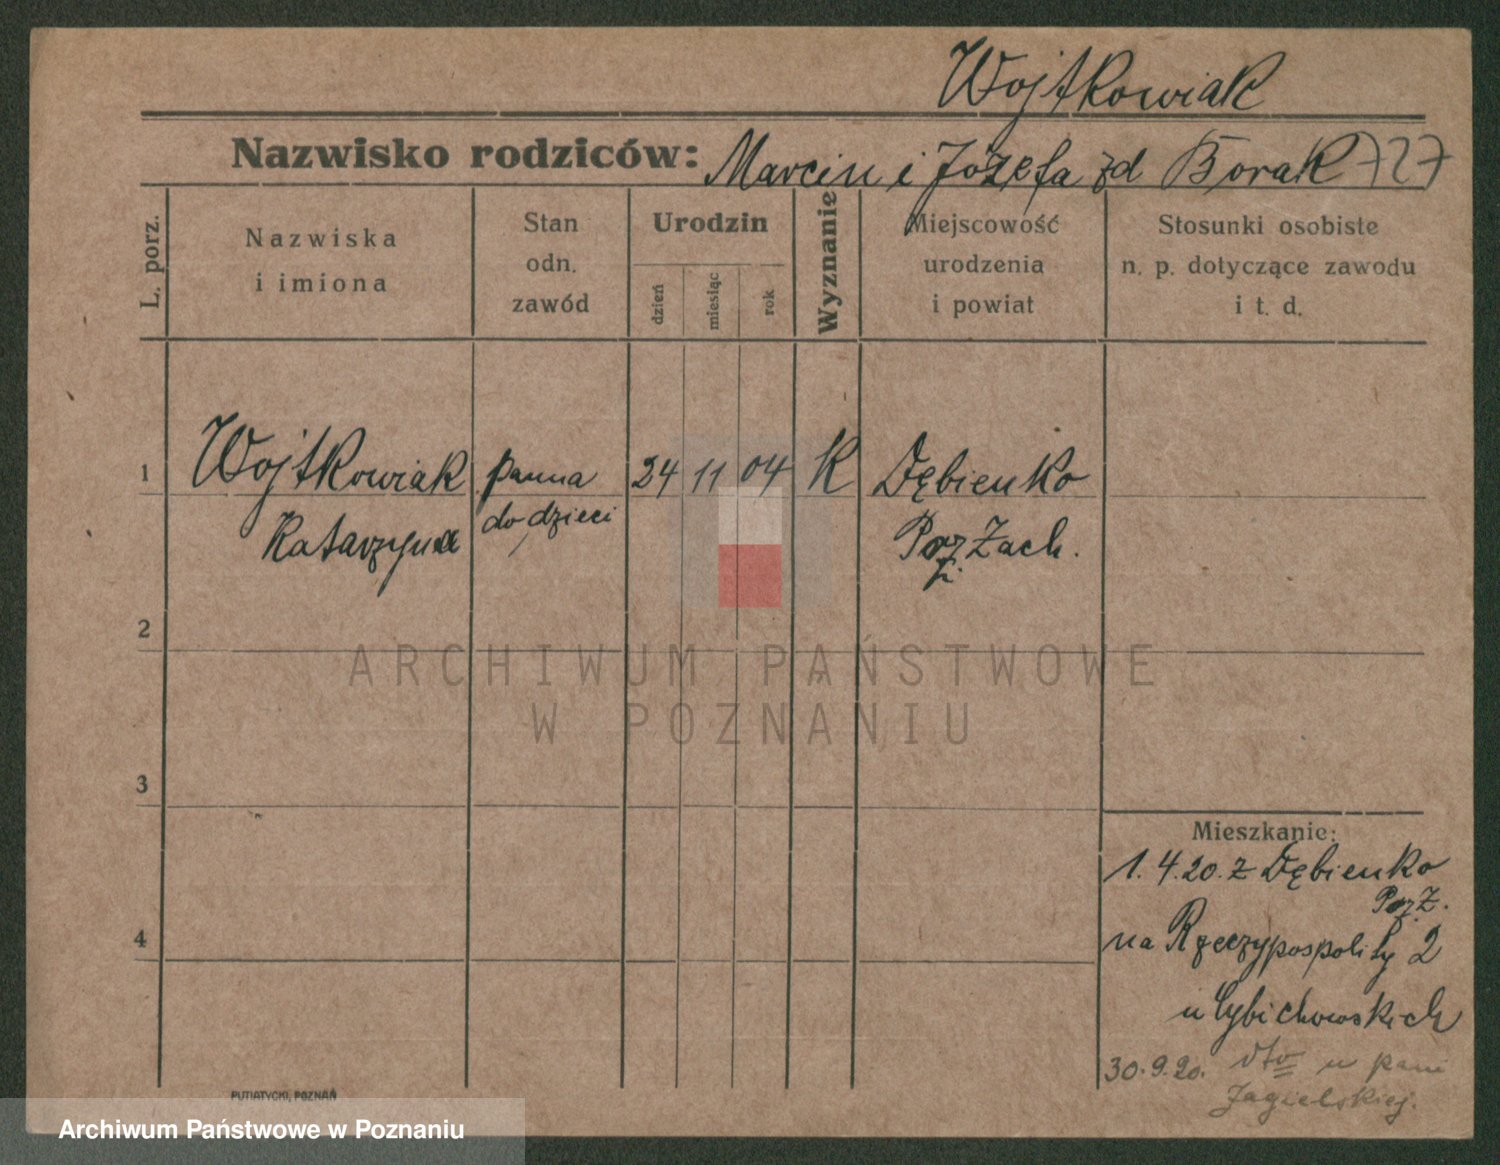 Wojtkowiak
Nazwisko rodziców: Marcin i Józefa zd Borak 727
L. porz.
Nazwiska
i imiona
Stan
odn.
zawód
Urodzin
dzień
miesiąc
rok
Wyznanie
Miejscowość
urodzenia
i powiat
Stosunki osobiste
n. p. dotyczące zawodu
i t. d.
1 Wojtkowiak panna 24 11 04 K Dębienko
Katarzyna do dzieci Pozn Zach.
2
3
4
Mieszkanie:
1.4.20. z Dębienko
Poz. Z.
na Rzeczypospolity 2
u Cybichowskich
30.9.20. dto u pani
Jagielskiej.
PUTIATYCKI, POZNAŃ
ARCHIWUM PAŃSTWOWE
W POZNANIU
Archiwum Państwowe w Poznaniu